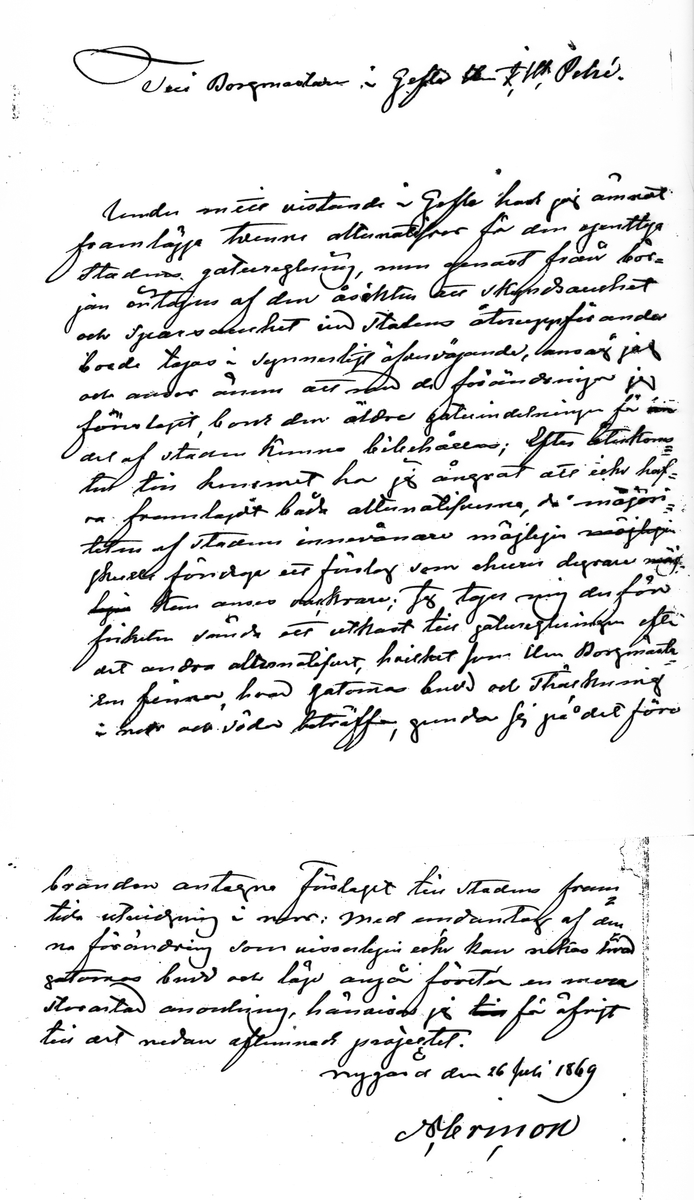 Till Borgmästaren i Gefle Petré.
Under mitt vistande i Gefle hade jag ämnat
framlägga tvenne alternativer för den egentliga
stadens gatureglering, men genast från bör-
jan öfvertygad af den åsigten att skyndsamhet
och sparsamhet vid stadens återuppförande
borde tagas i synnerligt öfvervägande, ansåg jag
och anser ännu att med de förändringar jag
föreslagit, borde den äldre gatuindelningen för
del af staden kunna bibehållas; Efter återkoms-
ten till hemmet har jag ångrat att icke haf-
va framlagdt båda alternativerna, då majori-
teten af stadens innevånare möjligen
skulle föredraga ett förslag som ehuru dyrare
kan anses vackrare; Jag tager mig derföre
friheten sända ett utkast till gatureglering efter
det andra alternativet, hvilket som Herr Borgmästa-
ren finner, hvad gatornas bredd och sträckning
i norr och söder beträffar, grundar sig på det före
branden antagna förslaget till stadens fram-
tida utvidgning i norr: Med undantag af den-
na förändring som visserligen icke kan nekas hvad
gatornas bredd och läge angår företer en mera
storartad anordning, hänvisar jag för öfrigt
till det redan aflemnade projectet.
Nygård den 26 Juli 1869